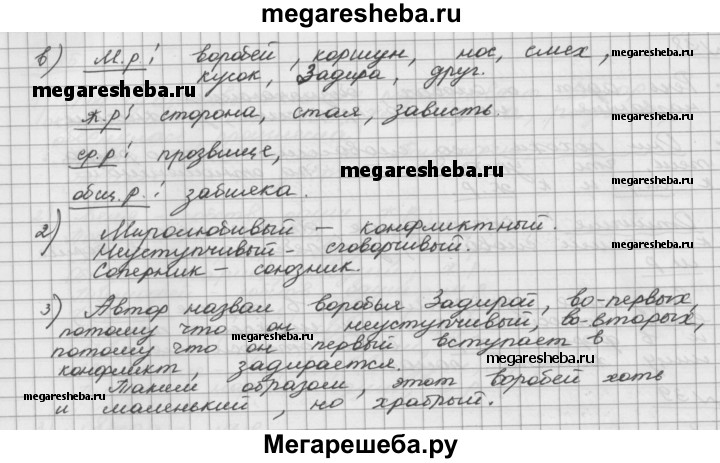 megaresheba.ru
в) м.р! воробей, коршун, нос, смех,
megaresheba.ru
кусок, Задира, друг.
megaresheba.ru
ж.р! сторона, стая, зависть.
ср.р! прозвище,
megaresheba.ru
общ.р.! забияка.
2) Миролюбивый – конфликтный.
megaresheba.ru
Неуступчивый – сговорчивый.
Соперник – союзник.
3) Автор назвал воробья Задирой, во-первых,
потому что он неуступчивый, во-вторых,
megaresheba.ru
потому что он первый вступает в
megaresheba.ru
конфликт, задирается.
Таким образом, этот воробей хоть
megaresheba.ru
и маленький, но храбрый.
megaresheba.ru
Мегарешеба.ру